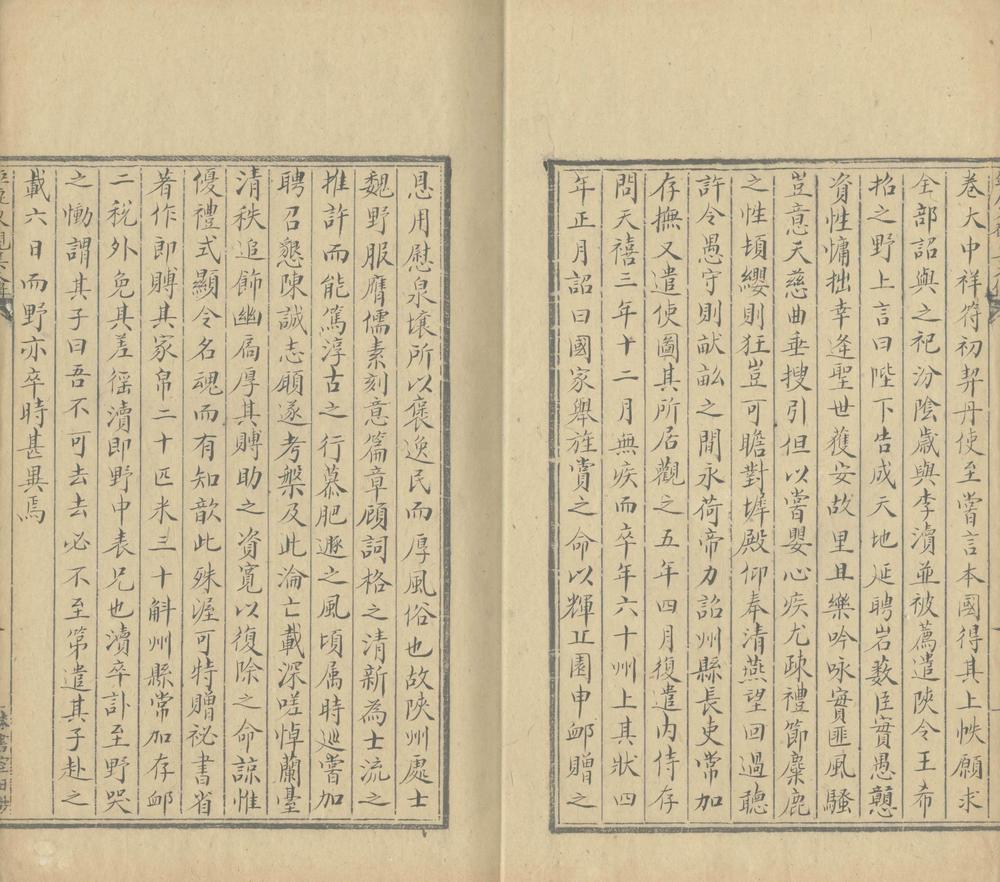 卷大中祥符初契丹使至嘗言本國得其上帙願求
全部詔與之祀汾陰歲與李瀆並被薦遣陝令王希
招之野上言曰陛下告成天地延聘岩薮臣實愚戇
資性慵拙幸逢聖世獲安故里且樂吟咏實匪風騷
豈意天慈曲垂搜引但以嘗嬰心疾尤踈禮節麋鹿
之性頓纓則狂豈可瞻對墀殿仰奉清燕望回過聽
許令愚守則畎畝之間永荷帝力詔州縣長吏常加
存撫又遣使圖其所居觀之五年四月復遣内侍存
問天禧三年十二月無疾而卒年六十州上其狀四
年正月詔曰國家舉旌賞之命以輝丘園申䘏贈之
恩用慰泉壤所以褒逸民而厚風俗也故陝州處士
魏野服膺儒素刻意篇章顧詞格之清新為士流之
推許而能篤淳古之行慕肥遯之風頃属時廵嘗加
聘召懇陳誠志願遂考槃及此淪亡載深嗟悼蘭臺
清秩追飾幽扃厚其賻助之資寛以復除之命諒惟
優禮式顯令名魂而有知歆此殊渥可特贈祕書省
著作郎賻其家帛二十匹米三十斛州縣常加存䘏
二稅外免其差徭瀆即野中表兄也瀆卒訃至野哭
之慟謂其子曰吾不可去去必不至第遣其子赴之
載六日而野亦卒時甚異焉